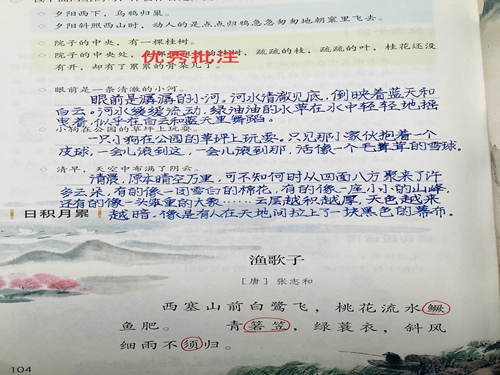 夕阳西下，乌鸦归巢。
夕阳斜照西山时，动人的是点点归鸦急急匆匆地朝窠里飞去。
院子的中央，有一棵桂树。
院子的中央处，
桂树，疏疏的枝，疏疏的叶，桂花还没
有开，却有了累累的骨朵儿了。
优秀批注
眼前是一条清澈的小河。
眼前是潺潺的小河，河水清澈见底，倒映着蓝天和
白云。河水缓缓流动，绿油油的水草在水中轻轻地摇
曳着，似乎在白云和蓝天里舞蹈。
小狗在公园的草坪上玩耍。
一只小狗在公园的草坪上玩耍。只见那小家伙抱着一个
皮球，一会儿滚到这，一会儿滚到那，活像一个毛茸茸的雪球。
清早，天空中布满了阴云。
清晨，原本晴空万里，可不知何时从四面八方聚来了许
多云朵，有的像一团雪白的棉花，有的像一座小小的山峰，
还有的像一头笨重的大象……云层越积越厚，天色越来
越暗，像是有人在天地间拉上了一块黑色的幕布。
日积月累
渔歌子
［唐］张志和
西塞山前白鹭飞，桃花流水鳜
鱼肥。 青箬笠，绿蓑衣，斜风
细雨不须归。
104